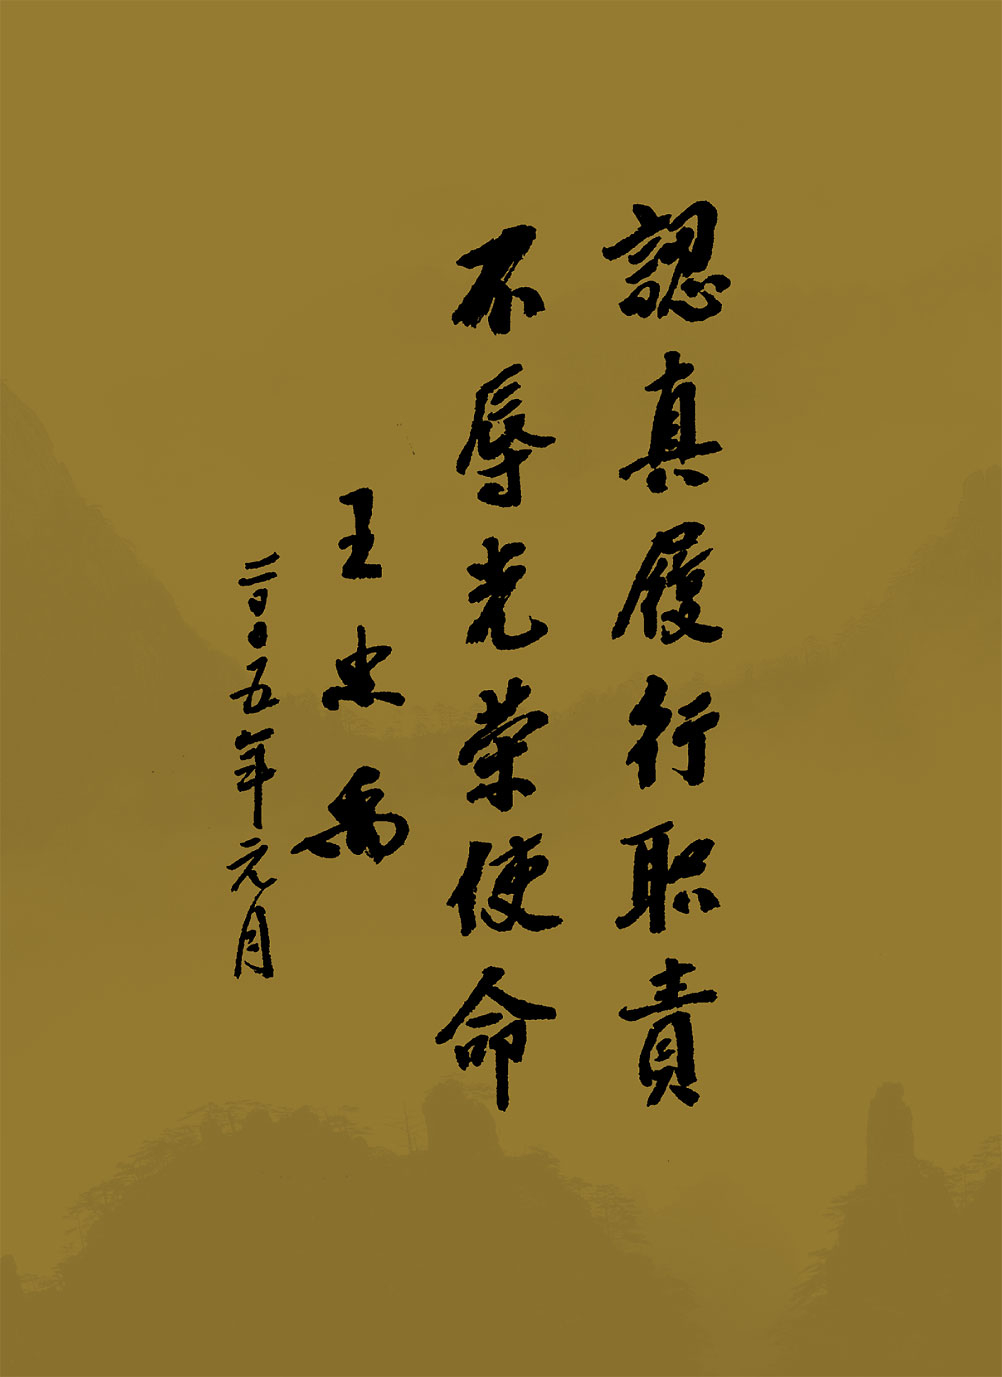 認真履行职责
不辱光荣使命
王忠禹
二〇〇五年元月